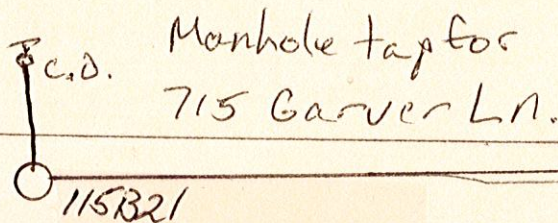 Manhole tap for
c.o.
715 Garver Ln.
115B21